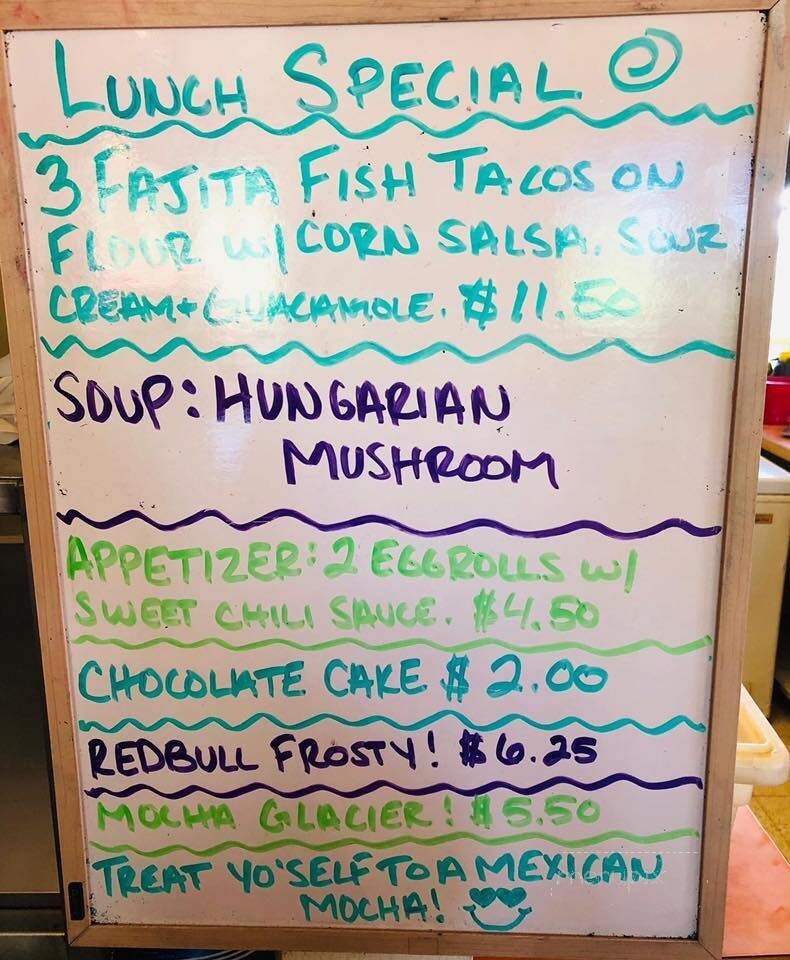 LUNCH SPECIAL
3 FAJITA FISH TACOS ON
FLOUR W/ CORN SALSA. SOUR
CREAM + GUACAMOLE. $11.50
SOUP: HUNGARIAN
MUSHROOM
APPETIZER: 2 EGGROLLS W/
SWEET CHILI SAUCE. $4.50
CHOCOLATE CAKE $2.00
REDBULL FROSTY! $6.25
MOCHA GLACIER! $5.50
TREAT YO'SELF TO A MEXICAN
MOCHA!